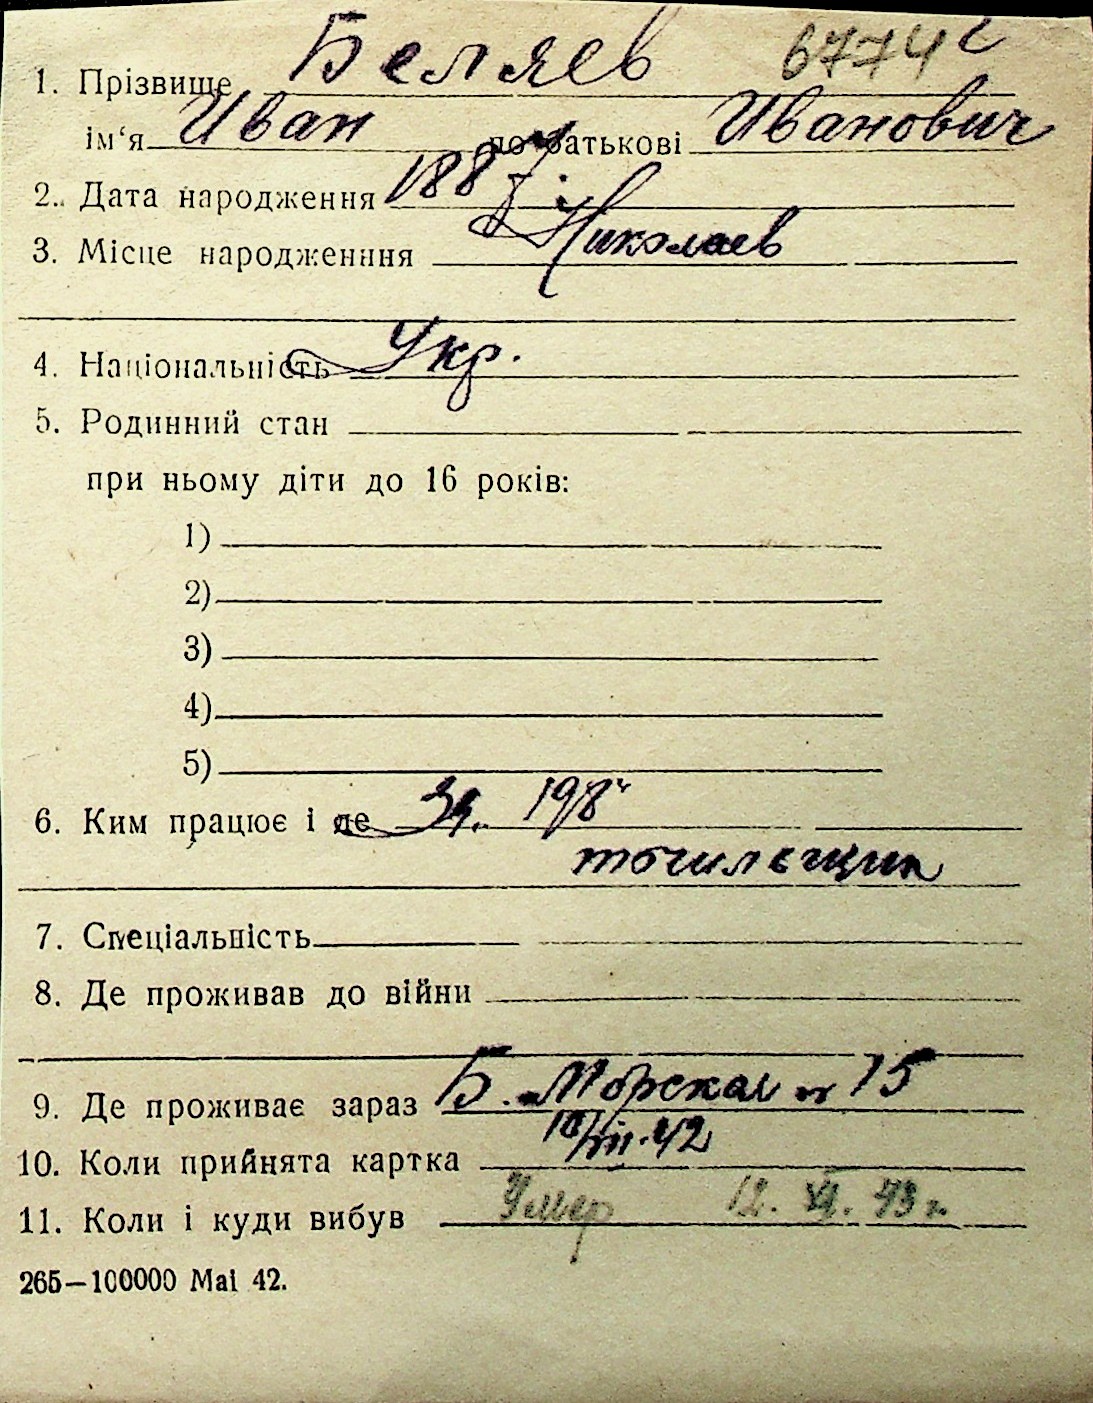 6774 с
1. Прізвище Беляев
ім‘я Иван по батькові Иванович
2. Дата народження 1887
3. Місце народженння Николаев
4. Національність Укр.
5. Родинний стан
при ньому діти до 16 років:
1)
2)
3)
4)
5)
6. Ким працює і де 198
точильщик
7. Спеціальність
8. Де проживав до війни
9. Де проживає зараз Б. Морская № 15
10. Коли прийнята картка 10/VII-42
11. Коли і куди вибув Умер 12. VI. 43 г.
265—100000 Mai 42.